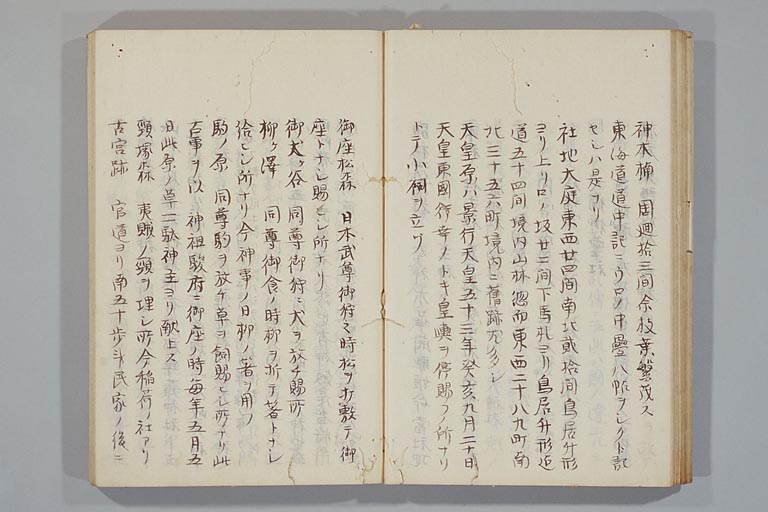 神木楠 周廻拾三間余枝葉繁茂ス
東海道道中記ニウロノ中疊八帖ヲシクト記
セシハ是ナリ
社地大庭東西廿四間南北貳拾間鳥居舛形
ヨリ上リ口ノ坂廿二間下馬札ヨリ鳥居舛形迄
道五十四間境内山林惣而東西二十八九町南
北三十五六町境内ニ舊跡尤多シ
天皇原ハ景行天皇五十三年癸亥九月二十日
天皇東國行幸ノトキ皇輿ヲ停賜フノ所ナリ
トテ小祠ヲ立ツ
御座松森 日本武尊御狩之時松ヲ折敷テ御
座トナシ賜ヒシ所ナリ
御犬ヶ谷 同尊御狩ニ犬ヲ放チ賜所
柳ヶ澤 同尊御食ノ時柳ヲ折テ箸トナシ
給ヒシ所ナリ今神事ノ日柳ノ箸ヲ用ノ
駒ノ原 同尊駒ヲ放ケ草ヲ飼賜ヒシ所ナリ此
古事ヲ以 神祖駿府ニ御座ノ時毎年五月五
日此原ノ草一駄神主ヨリ献上ス
頸塚森 夷賊ノ頸ヲ埋シ所今稲荷ノ社アリ
古宮跡 官道ヨリ南五十歩斗民家ノ後ニ